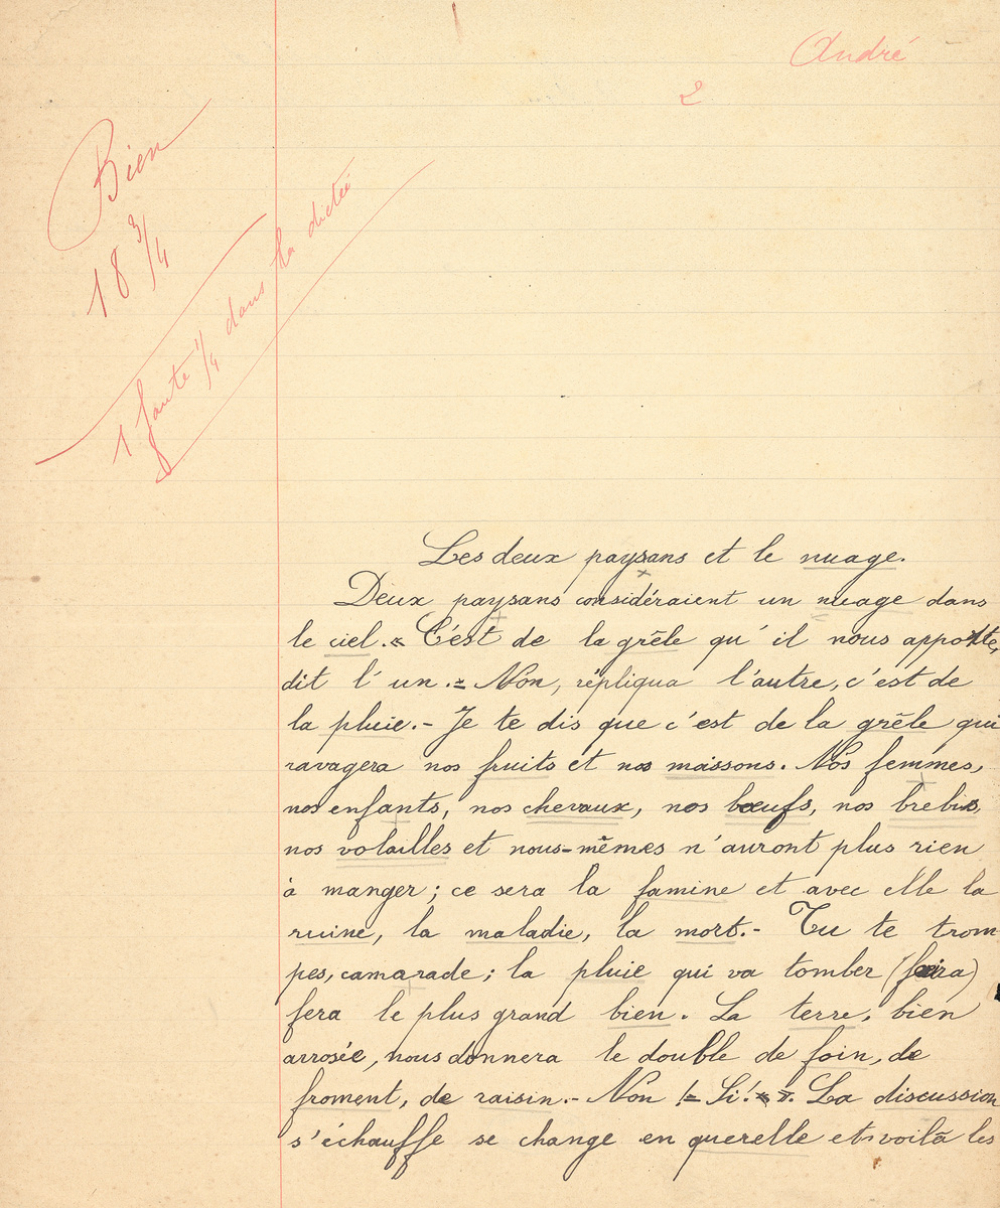 André
2
Bien
18 3/4
1 faute 1/4 dans la dictée
Les deux paysans et le nuage.
Deux paysans considéraient un nuage dans
le ciel. « C'est de la grêle qu'il nous apporte,
dit l'un. - Non, répliqua l'autre, c'est de
la pluie. - Je te dis que c'est de la grêle qui
ravagera nos fruits et nos moissons. Nos femmes,
nos enfants, nos chevaux, nos bœufs, nos brebis,
nos volailles et nous-mêmes n'auront plus rien
à manger ; ce sera la famine et avec elle la
ruine, la maladie, la mort. - Tu te trom-
pes, camarade ; la pluie qui va tomber (faira)
fera le plus grand bien. La terre, bien
arrosée, nous donnera le double de foin, de
froment, de raisin. - Non ! - Si ! ». La discussion
s'échauffe se change en querelle et voilà les